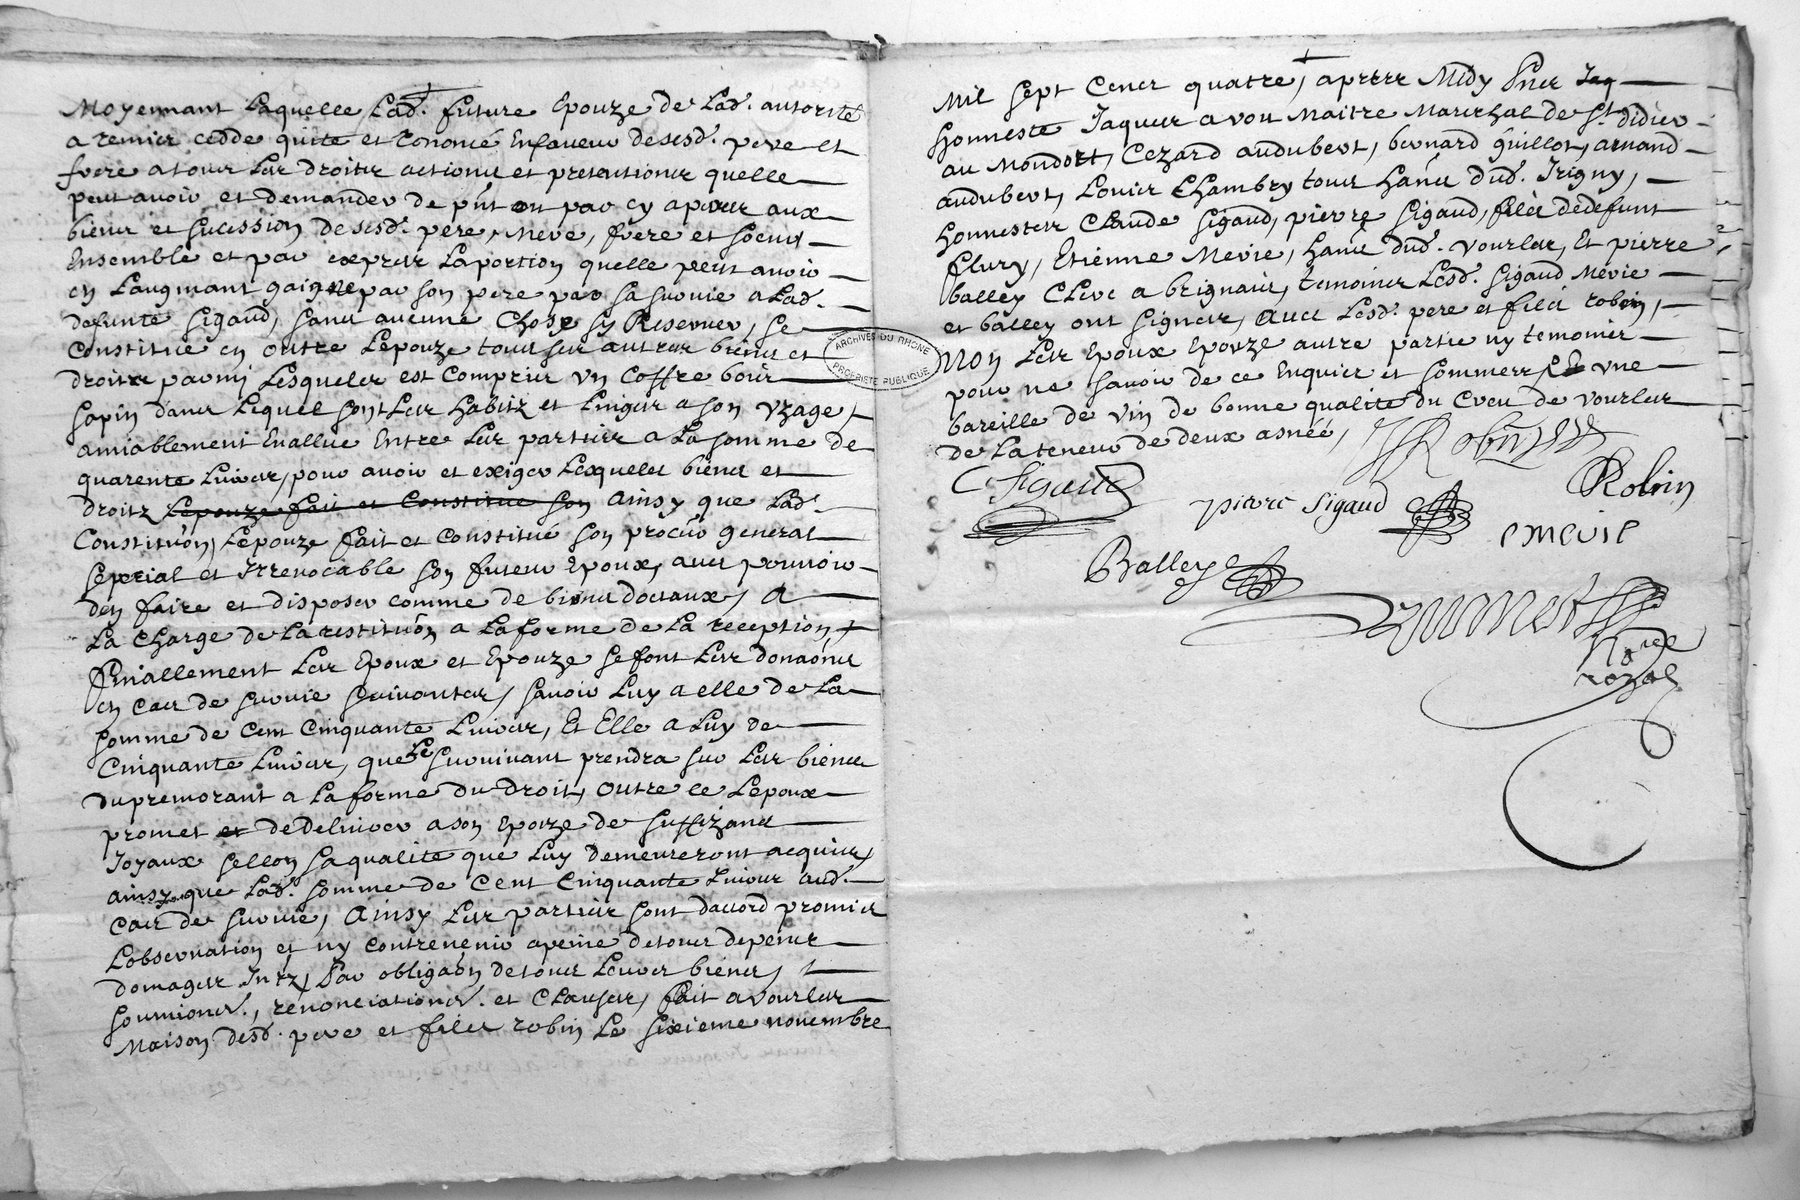 Moyennant Laquelle Lad. future Epouze de Lad. autorité
a remier cedde quitte et Renoncé Enfaveur desesd. pere et
frere atouts Les droits actions et pretentions quelle
peut avoir et demander de pnt et par cy apres aux
biens et sucession desesd. pere, Mere, frere et soeurs
Ensemble et par exprez Laportion quelle peut avoir
en Laugmant gaigné par son pere par sa survie a Lad.
defunte Sigaud, sans aucune Chose sy Reserver, se
Constitue en outre Lepouze tous ses autres biens et
droits parmi Lesquels est Compris un Coffre bois
sapin dans Lequel sont Les habitz et Linges a son Uzage,
amiablement Evallue Entre Les parties a La somme de
quarente Livres, pour avoir et exiger Lesquels biens et
droitz Lepouze fait et Constitue son Ainsy que Lad.
Constituon, Lepouze fait et constitué son procur general
special et Irrevocable son futeur Epoux, avec pouvoir
den faire et disposer comme de biens doctaux, A
La Charge de La restituon a La forme de La reception,
finallement Les Epoux et Epouze se font Les donaons
en cas de survie suivantes, savoir Luy a elle de La
somme de Cent Cinquante Livres, Et Elle a Luy de
Cinquante Livres, que Le survivant prendra sur Les biens
du premorant a La forme du droit, outre ce Lepoux
promet et dedelivrer a son Epouze de suffizans
Joyaux sellon sa qualité que Luy demeureront acquis,
ainsy que Lad. somme de Cent Cinquante Livres aud.
cas de survie, Ainsy Les parties sont daccord promis
Lobservation et ny contrevenir apeine detous depens
domages Intz, Par obligaon detous Leurs biens,
soumions., renonciations. et Clauses, fait a vourles
Maison desd. pere et fils robin Le sixieme novembre
Mil sept Cens quatre, apres Midy Pns Jaq
honneste Jaques avou Maitre Marechal de St. didier
au Mondort, Cezard audubert, bernard guillot, arnaud
audubert, Louis Chambry tous hans dud. Irigny,
honnestes Claude Sigaud, pierre Sigaud, fils dedefunt
flury, Etienne Merie, hans dud. vourles, Et pierre
balley Clerc a brignais, temoins Lesd. Sigaud Merie
et balley ont signes, avec Lesd. pere et fils robin,
Non Les Epoux Epouze autre partie ny temoins
pour ne savoir de ce Enquis et sommes, Et une
bareille de vin de bonne qualité du Creu de vourles
de La teneur de deux asnée,
Robin
C Sigaud
pierre Sigaud
Robin
emerie
Balley
nore
royal
ARCHIVES DU RHONE
PROPRIETE PUBLIQUE